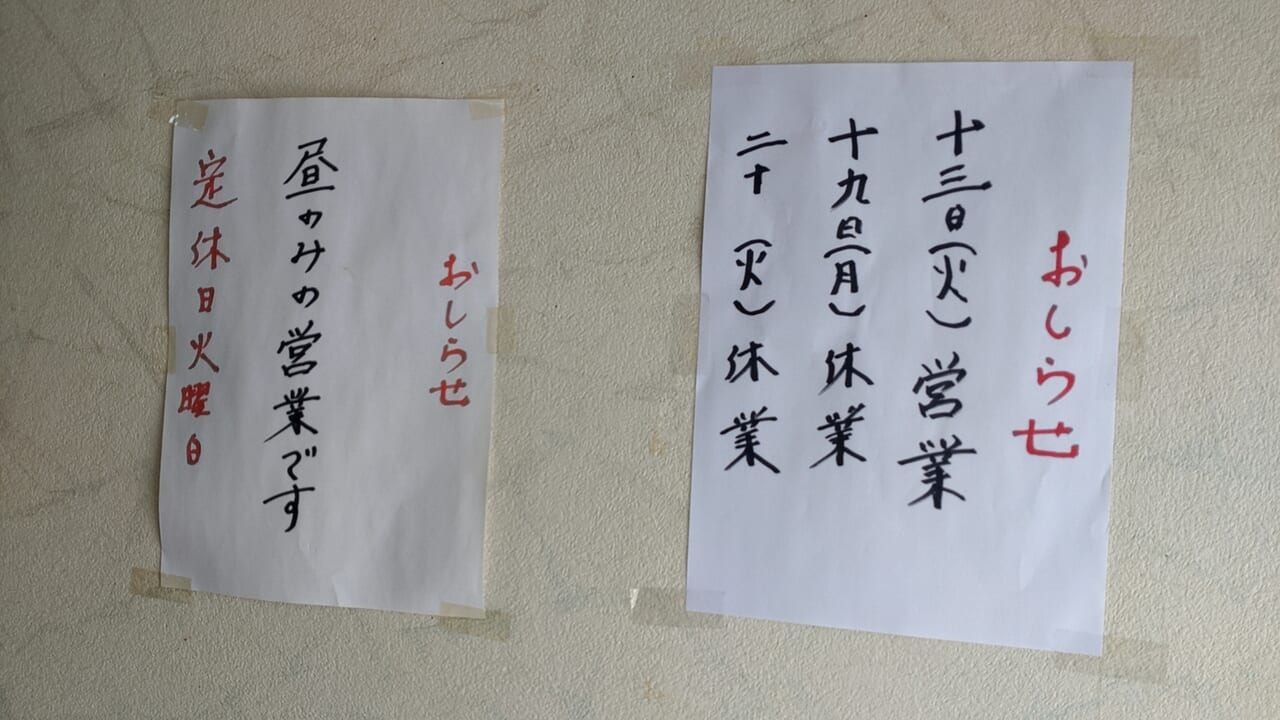 おしらせ
十三日(火)営業
十九日(月)休業
二十(火)休業
おしらせ
昼のみの営業です
定休日火曜日